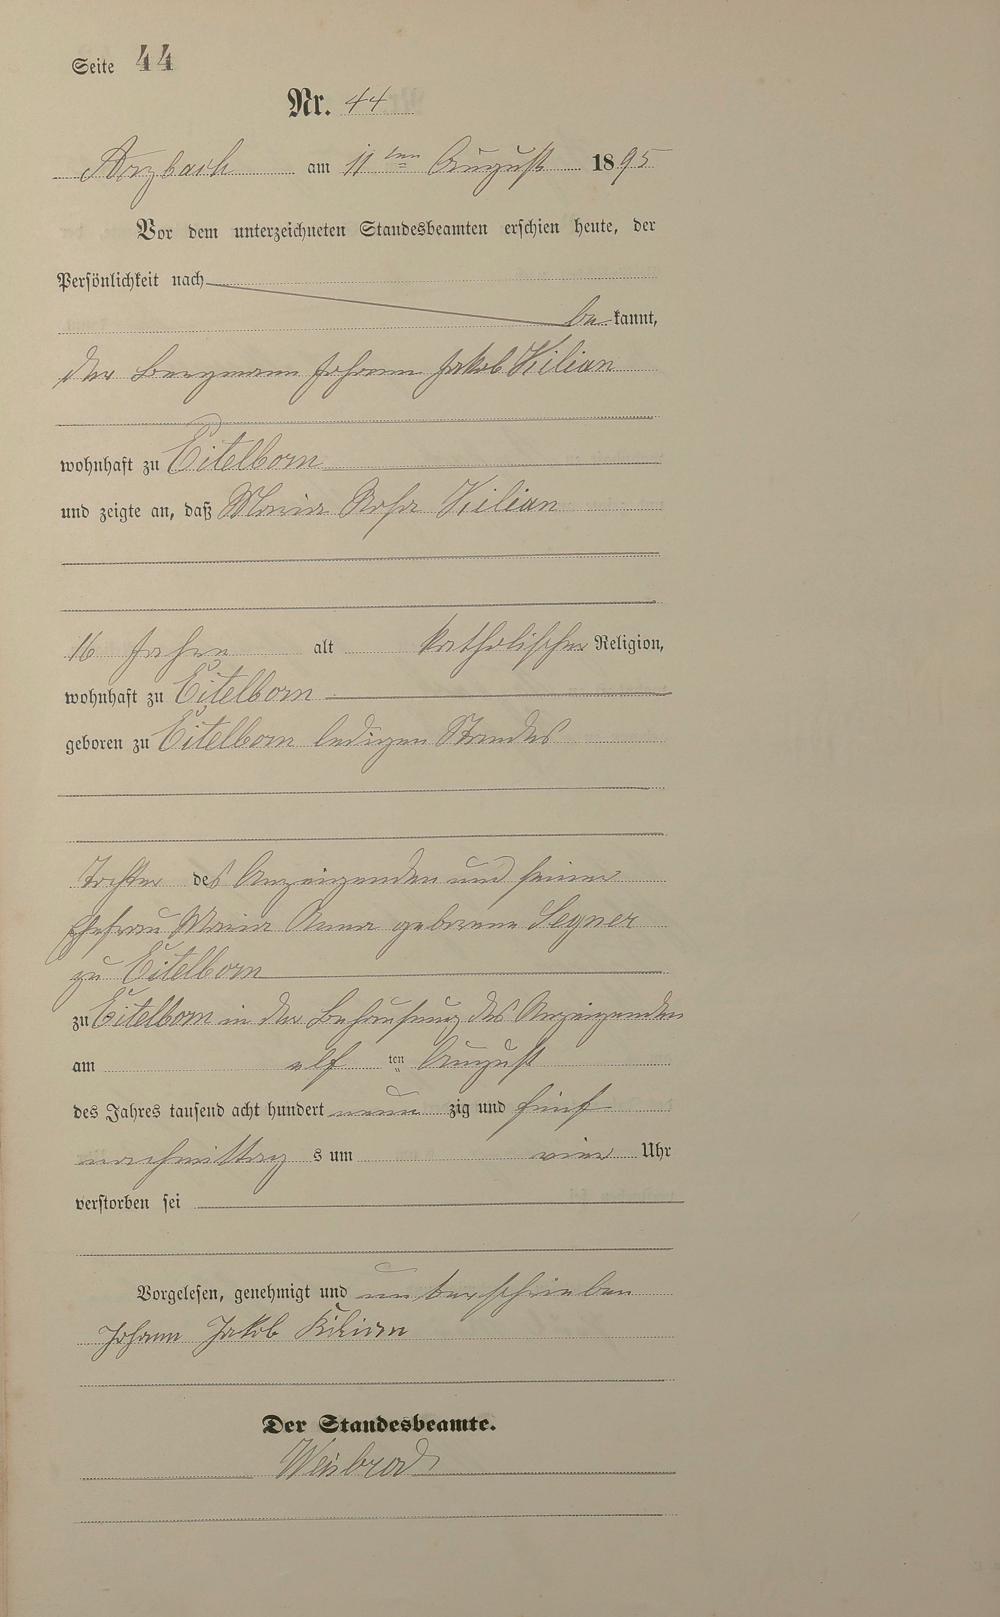 Seite 44
Nr. 44
Arzbach am 11ten August 1895
Vor dem unterzeichneten Standesbeamten erschien heute, der
Persönlichkeit nach
bekannt,
der Bergmann Johann Jakob Kilian
wohnhaft zu Eitelborn
und zeigte an, daß Maria Rosa Kilian
16 Jahre alt katholischer Religion,
wohnhaft zu Eitelborn
geboren zu Eitelborn ledigen Standes
Tochter des Anzeigenden und seiner
Ehefrau Maria Anna geborene Segner
zu Eitelborn
zu Eitelborn in der Behausung des Anzeigenden
am elf ten August
des Jahres tausend acht hundert neun zig und fünf
nachmittag s um vier Uhr
verstorben sei
Vorgelesen, genehmigt und unterschrieben
Johann Jakob Kilian
Der Standesbeamte.
Weisbrod